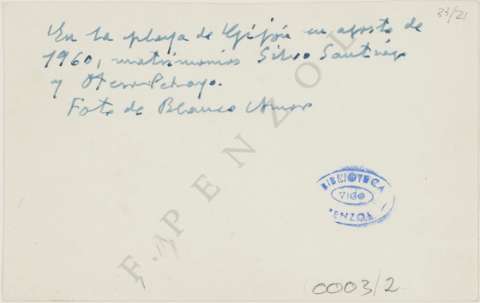 33/21
En la playa de Gijón en agosto de
1960, matrimonios Silvo Santiago
y Otero Pedrayo.
Foto de Blanco Amor
F. PENZOL
BIBLIOTECA
VIGO
PENZOL
0003/2